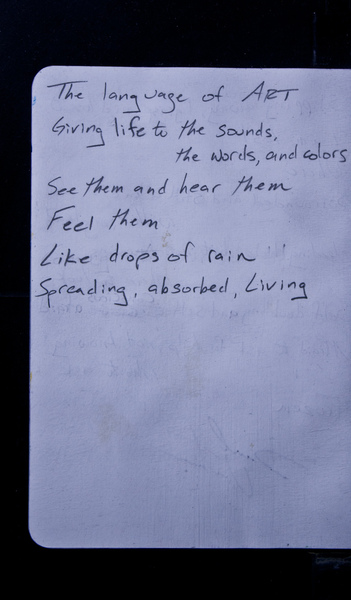 The language of ART
Giving life to the sounds,
the words, and colors
See them and hear them
Feel them
Like drops of rain
Spreading, absorbed, Living